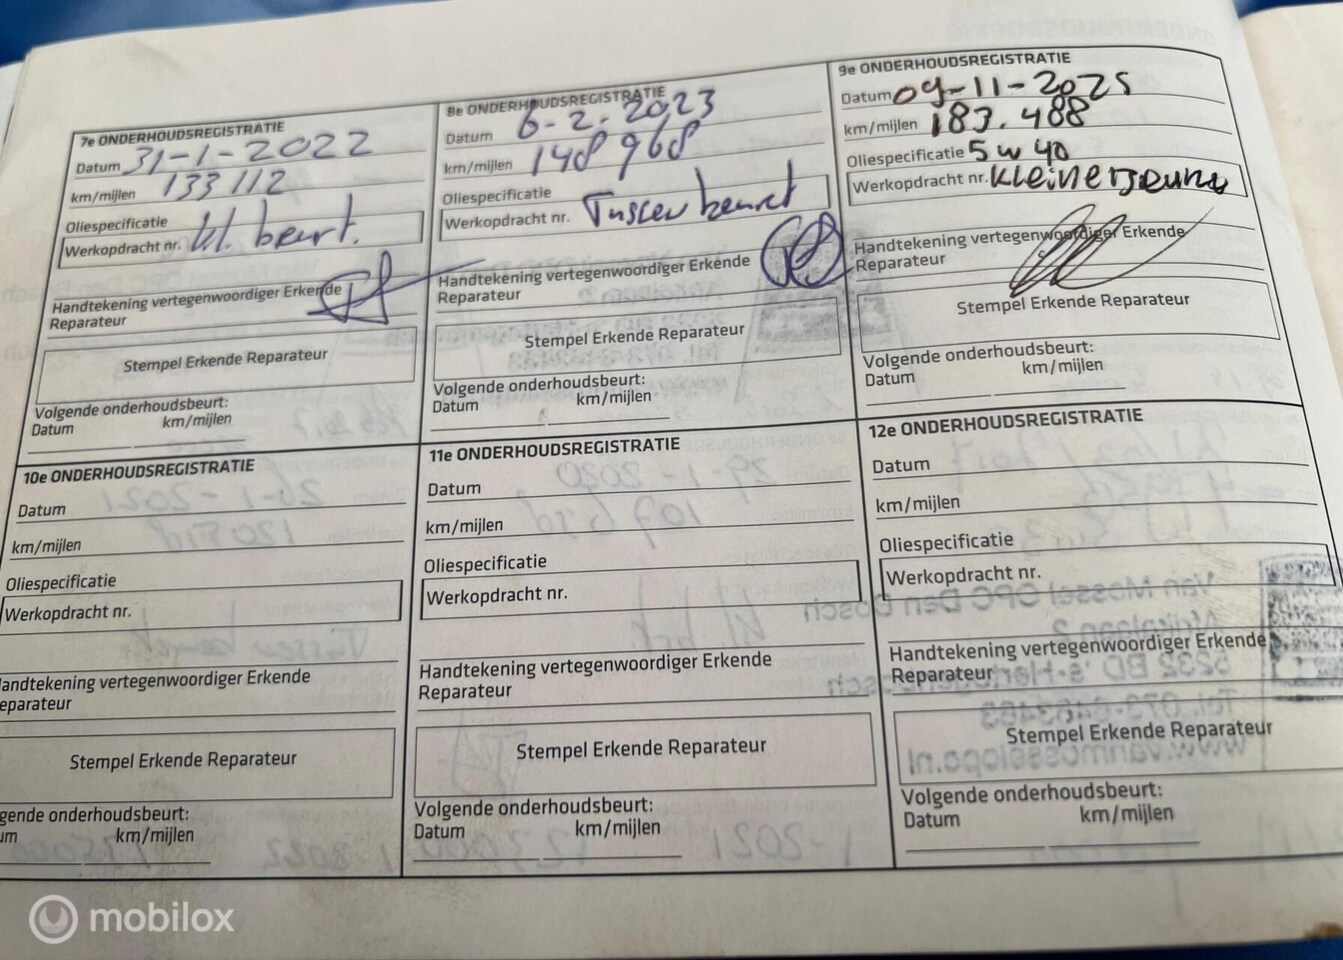 7e ONDERHOUDSREGISTRATIE
Datum 31-1-2022
km/mijlen 133 112
Oliespecificatie
Werkopdracht nr. kl. beurt.
Handtekening vertegenwoordiger Erkende
Reparateur
Stempel Erkende Reparateur
Volgende onderhoudsbeurt:
Datum km/mijlen
8e ONDERHOUDSREGISTRATIE
Datum 6-2-2023
km/mijlen 148 968
Oliespecificatie
Werkopdracht nr. Tussen beurt
Handtekening vertegenwoordiger Erkende
Reparateur
Stempel Erkende Reparateur
Volgende onderhoudsbeurt:
Datum km/mijlen
9e ONDERHOUDSREGISTRATIE
Datum 09-11-2025
km/mijlen 183.488
Oliespecificatie 5w40
Werkopdracht nr. Kleine
Handtekening vertegenwoordiger Erkende
Reparateur
Stempel Erkende Reparateur
Volgende onderhoudsbeurt:
Datum km/mijlen
10e ONDERHOUDSREGISTRATIE
Datum
km/mijlen
Oliespecificatie
Werkopdracht nr.
andtekening vertegenwoordiger Erkende
eparateur
Stempel Erkende Reparateur
gende onderhoudsbeurt:
um km/mijlen
11e ONDERHOUDSREGISTRATIE
Datum
km/mijlen
Oliespecificatie
Werkopdracht nr.
Handtekening vertegenwoordiger Erkende
Reparateur
Stempel Erkende Reparateur
Volgende onderhoudsbeurt:
Datum km/mijlen
12e ONDERHOUDSREGISTRATIE
Datum
km/mijlen
Oliespecificatie
Werkopdracht nr.
Handtekening vertegenwoordiger Erkende
Reparateur
Stempel Erkende Reparateur
Volgende onderhoudsbeurt:
Datum km/mijlen
mobilox